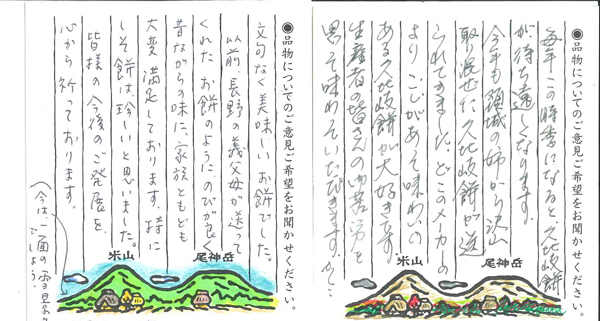 ●品物についてのご意見ご希望をお聞かせください。
毎年この時季になると、久比岐餅
が待ち遠しくなります。
今年も頸城の姉から沢山
取り混ぜた久比岐餅が送
られてきました。どこのメーカーの
よりこしがあって味わいの
ある久比岐餅が大好きです。
生産者の皆さんのご苦労を
思って味わっていただきます。
尾神岳
米山
●品物についてのご意見ご希望をお聞かせください。
文句なく美味しいお餅でした。
以前、長野の義父母が送って
くれたお餅のようにのびが良く
昔ながらの味に、家族ともども
大変満足しております。特に
しそ餅は珍しいと思いました。
皆様の今後のご発展を、
心から祈っております。
尾神岳
米山
(今は、一面の雪景
でしょう。